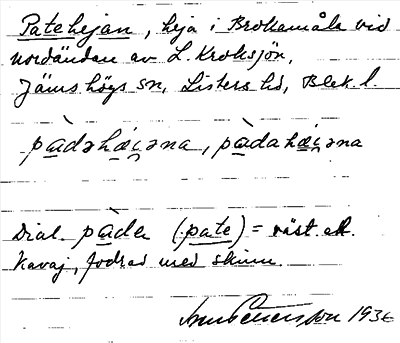 Patehejan, heja i Brokamåla vid
nordändan av L. Kroksjön,
Jäms högs sn, Listers hd, Blek. l.
pàdəhæi̯əna, pàdahæi̯əna
Dial. pàda (pate) = väst. el.
kavaj, fodrad med skinn.
1936